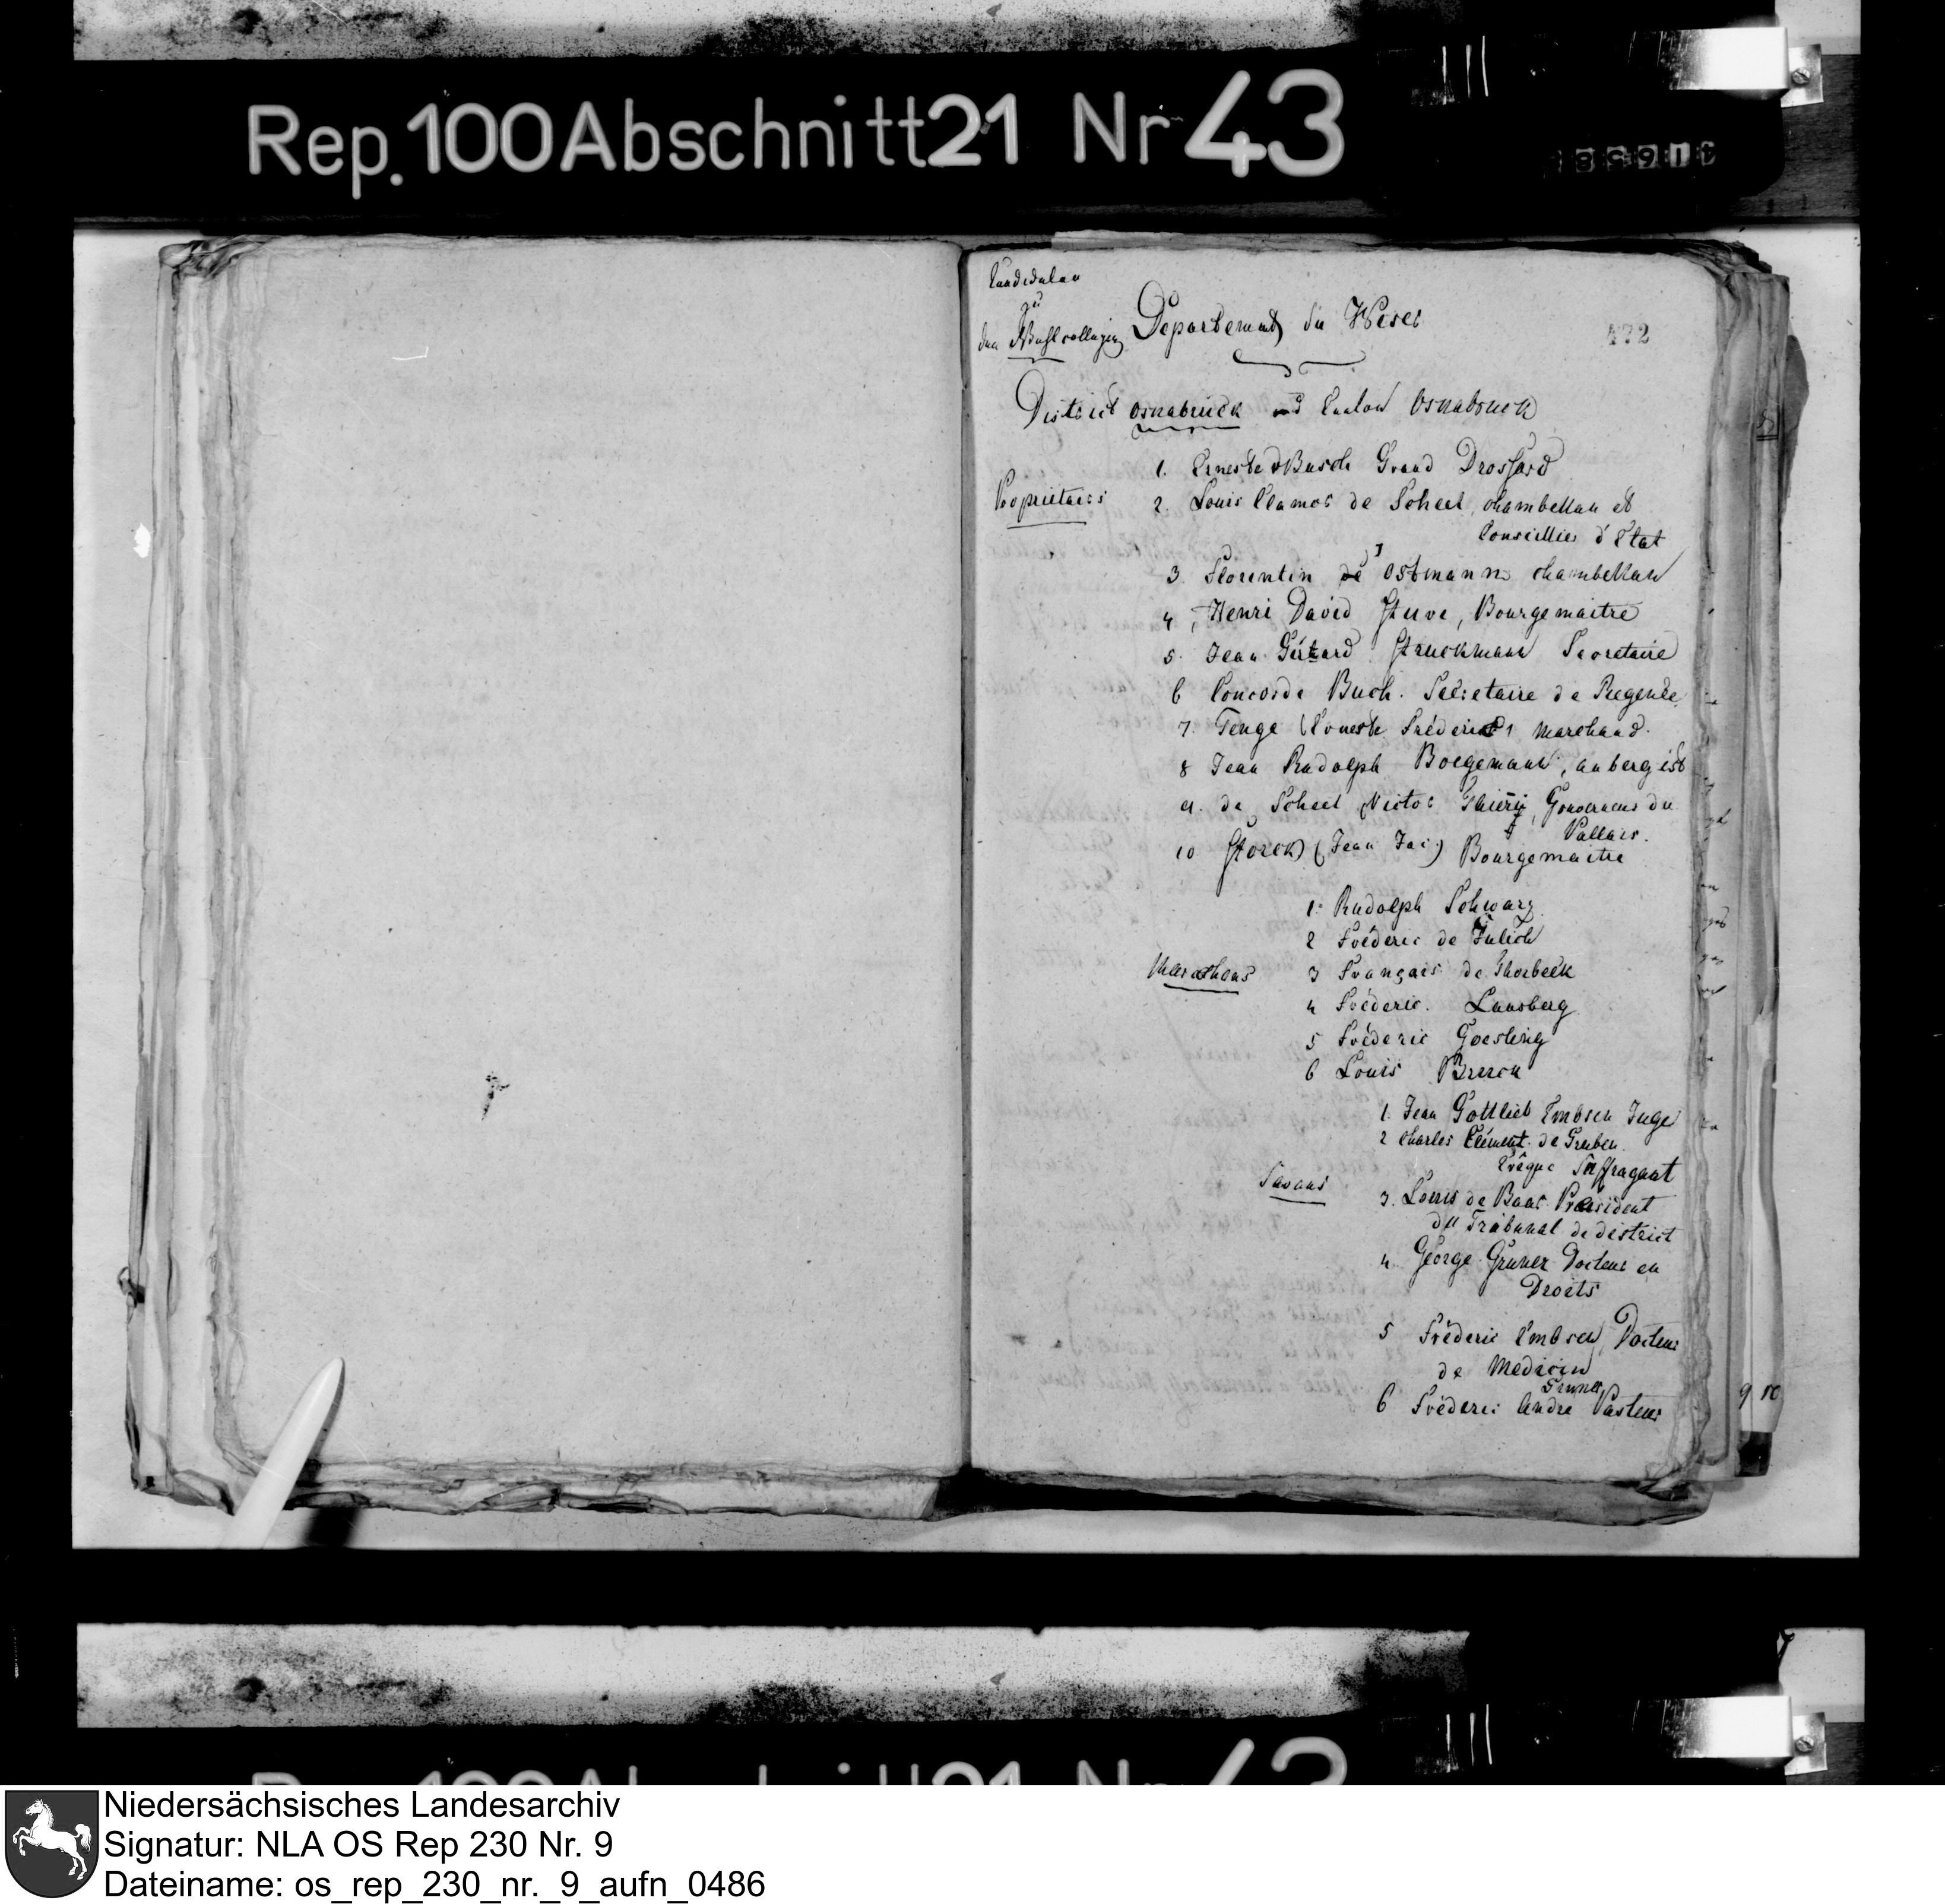 Rep. 100 Abschnitt 21 Nr 43
Kandidaten
zu
den Wahlcollegien
Departement du Weser
472
District Osnabrück und Canton Osnabrück
1. Erneste de Busch Grand Drossard
Proprietairs
2. Louis Clamor de Scheel, chambellan et
Conseillier d'Etat
3. Florentin de Ostmann chambellan
4, Henri David Stuve, Bourgemaitre
5. Jean Gerhard Struckmann Secretaire
6 Concorde Buch. Secretaire de Regence
7. Tenge (Erneste Fréderic) marchand.
8 Jean Rudolph Boegemann, aubergist
9. de Scheel Victor Thierij, Gouverneur du
Pallais.
10 Storck (Jean Jac:) Bourgemaitre
1. Rudolph Schwarz
2 Fréderic de Jülich
Marchans
3 Français de Thorbeck
4 Fréderic. Lansberg
5 Fréderic Goesling
6 Louis Breuer
1. Jean Gottlieb Embsen Juge
2 Charles Clément de Gruben.
Evêque Suffragant
Savans
3. Louis de Baar Praesident
du Tribunal de district
4. George Gruner Docteur en
Droits
5 Fréderic Embsen, Docteur
de Medicin
Gruner
6 Fréderic Andre Pasteur
9 10
Niedersächsisches Landesarchiv
Signatur: NLA OS Rep 230 Nr. 9
Dateiname: os_rep_230_nr._9_aufn_0486